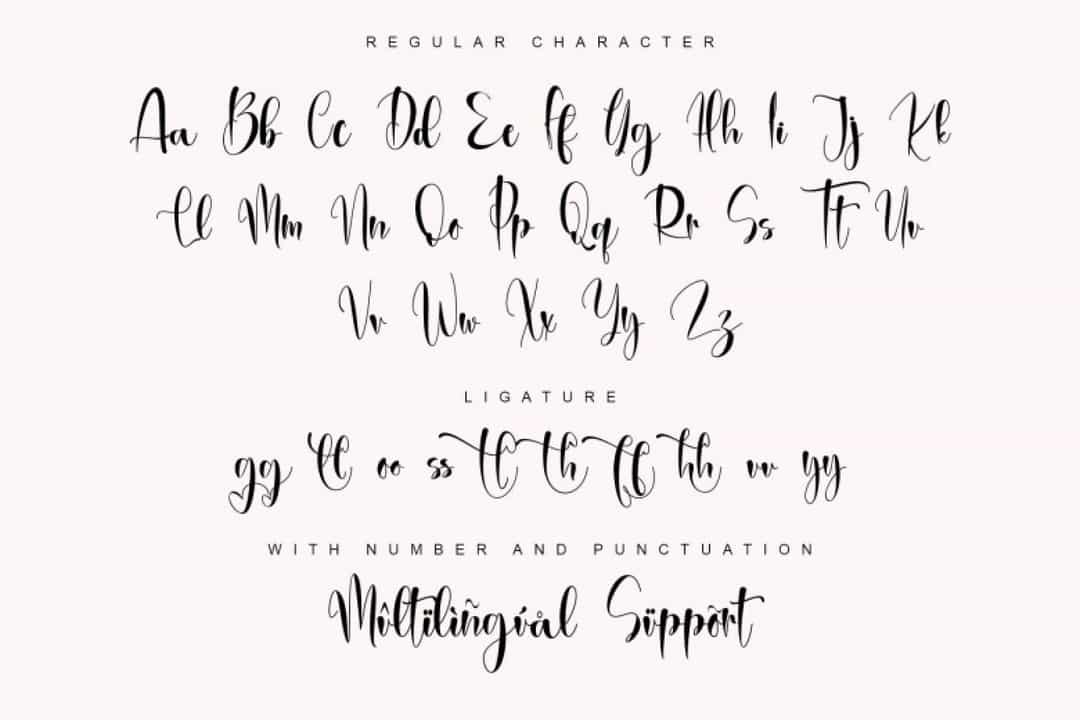 REGULAR CHARACTER
Aa Bb Cc Dd Ee Ff Gg Hh Ii Jj Kk
Ll Mm Nn Oo Pp Qq Rr Ss Tt Uu
Vv Ww Xx Yy Zz
LIGATURE
gg ll oo ss tt th ff hh uu yy
WITH NUMBER AND PUNCTUATION
Mûltïlìñgúål Süppõrt